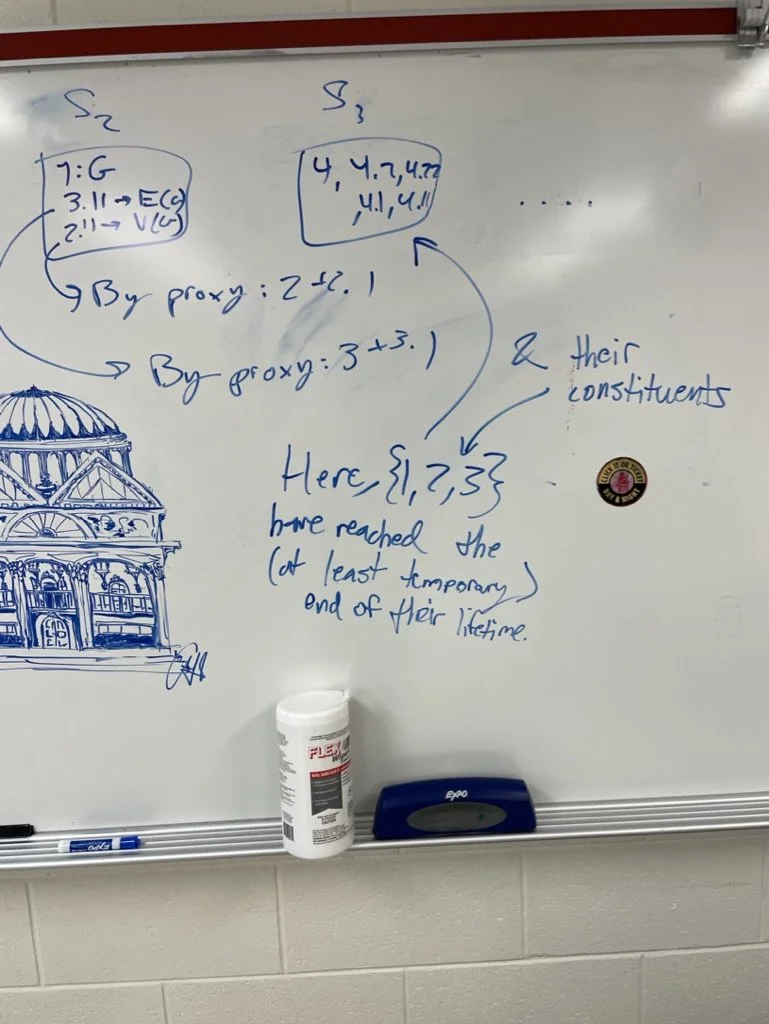 S2
1:G
3.11 → E(G)
2.11 → V(G)
S3
4, 4.2, 4.22
,4.1, 4.11
.....
By proxy: 2 + 2.1
By proxy: 3 + 3.1
& their
constituents
Here, {1, 2, 3}
have reached the
(at least temporary)
end of their lifetime.
CLICK IT OR TICKET
DAY & NIGHT
FLEX
Wipes
EXPO
EXPO